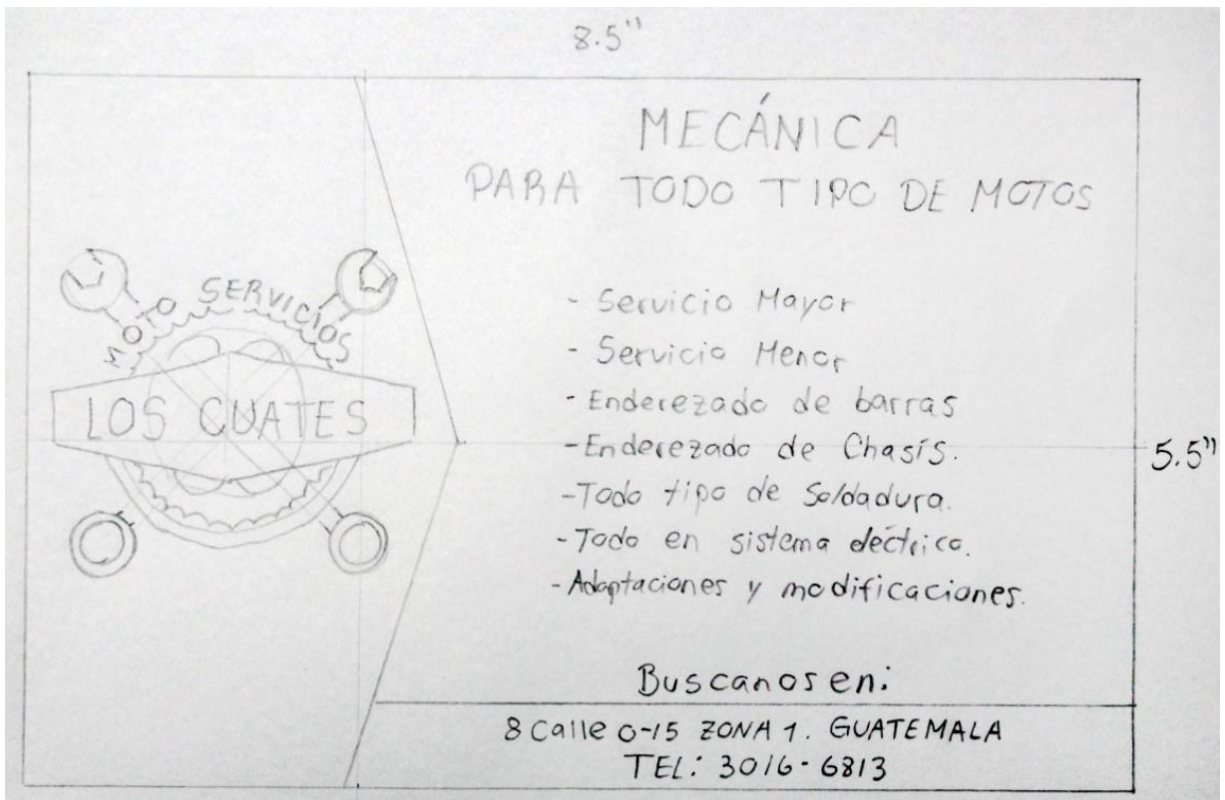 8.5"
MECÁNICA
PARA TODO TIPO DE MOTOS
MOTO SERVICIOS
LOS CUATES
- Servicio Mayor
- Servicio Menor
- Enderezado de barras
- Enderezado de Chasís.
- Todo tipo de Soldadura.
- Todo en sistema eléctrico.
- Adaptaciones y modificaciones.
5.5"
Buscanos en:
8 Calle 0-15 ZONA 1. GUATEMALA
TEL: 3016-6813